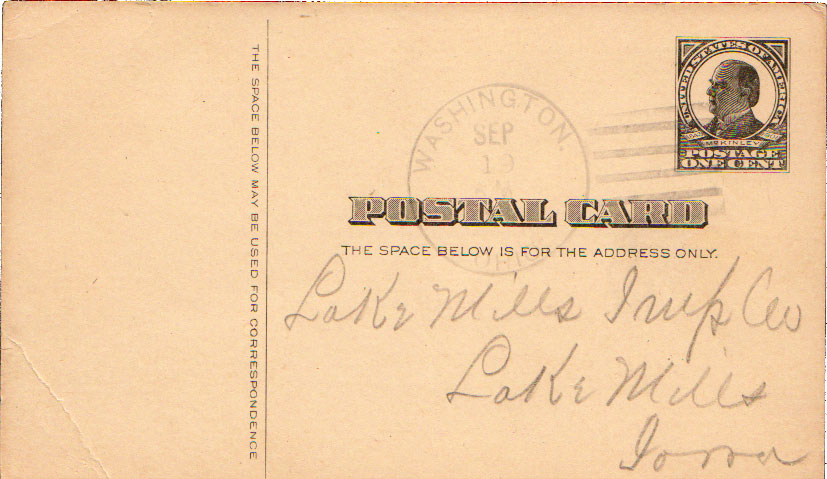 THE SPACE BELOW MAY BE USED FOR CORRESPONDENCE
WASHINGTON.
SEP
1
UNITED STATES OF AMERICA
McKINLEY
POSTAGE
ONE CENT
POSTAL CARD
THE SPACE BELOW IS FOR THE ADDRESS ONLY.
Lake Mills Imp Co
Lake Mills
Iowa